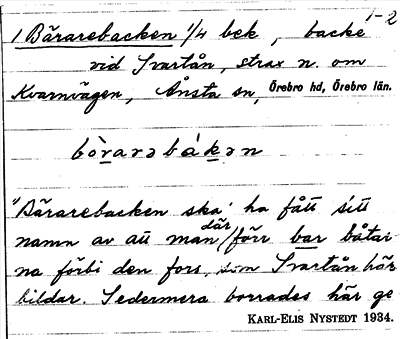 1-2
1 Bärarebacken 1/4 bek, backe
vid Svartån, strax n. om
Kvarnvägen, Ånsta sn, Örebro hd, Örebro län.
bòrarə bákən
"Bärarebacken ska' ha fått sitt
namn av att man där förr bar båtar
na förbi den fors, som Svartån här
bildar. Sedermera borrades här ge
KARL-ELIS NYSTEDT 1934.